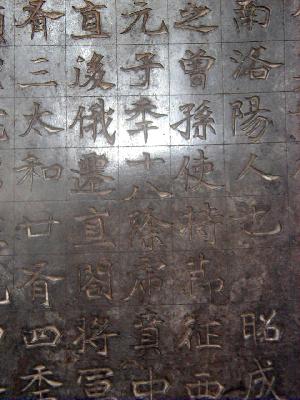 南洛陽人也　昭成
之曾孫使持節征西
元子年十八除虎賁中
直後俄遷直閤將軍
有三太和廿有四年